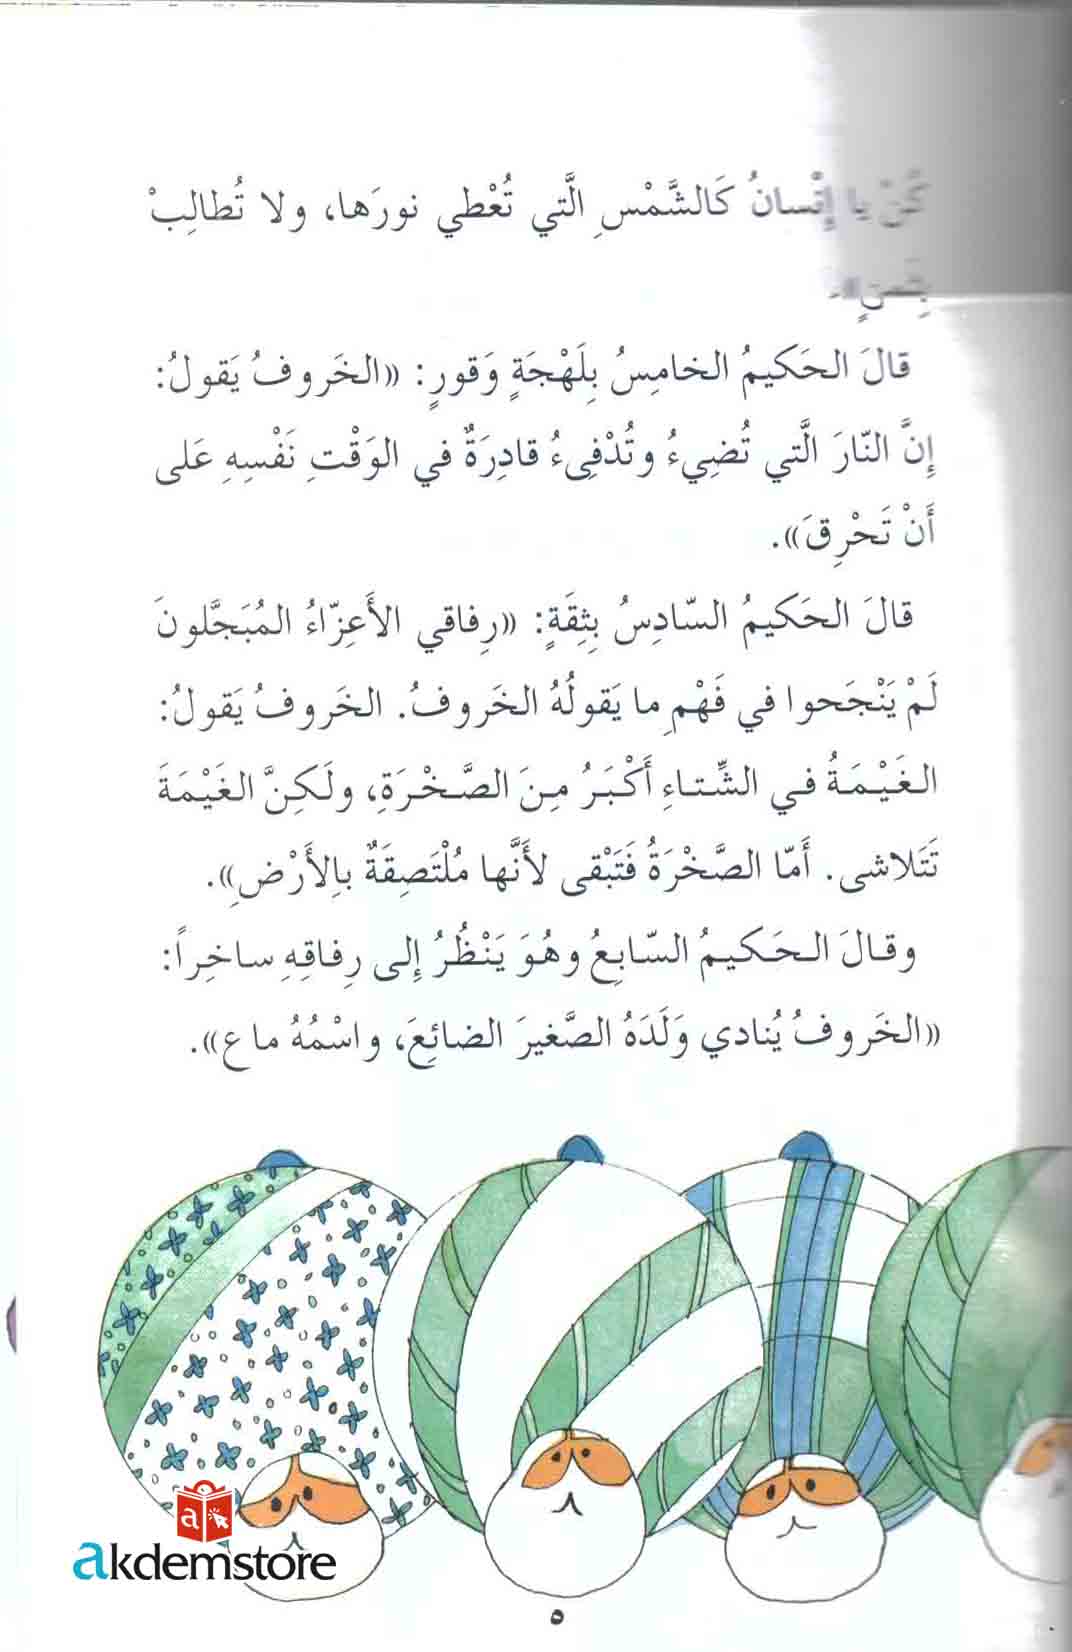 كُنْ يا إِنْسانُ كَالشَّمْسِ الَّتي تُعْطي نورَها، ولا تُطالِبْ
بِثَمَنٍ».
قالَ الحَكيمُ الخامِسُ بِلَهْجَةٍ وَقورٍ: «الخَروفُ يَقولُ:
إِنَّ النّارَ الَّتي تُضِيءُ وتُدْفِىءُ قادِرَةٌ في الوَقْتِ نَفْسِهِ عَلى
أَنْ تَحْرِقَ».
قالَ الحَكيمُ السّادِسُ بِثِقَةٍ: «رِفاقي الأَعِزّاءُ المُبَجَّلونَ
لَمْ يَنْجَحوا في فَهْمِ ما يَقولُهُ الخَروفُ. الخَروفُ يَقولُ:
الغَيْمَةُ في الشِّتاءِ أَكْبَرُ مِنَ الصَّخْرَةِ، ولَكِنَّ الغَيْمَةَ
تَتَلاشى. أَمّا الصَّخْرَةُ فَتَبْقى لأَنَّها مُلْتَصِقَةٌ بالِأَرْضِ».
وقالَ الحَكيمُ السّابِعُ وهُوَ يَنْظُرُ إِلى رِفاقِهِ ساخِراً:
«الخَروفُ يُنادي وَلَدَهُ الصَّغيرَ الضائِعَ، واسْمُهُ ماع».
a
akdemstore
٥